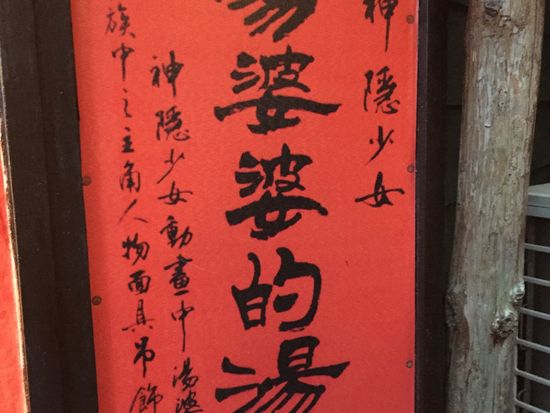 神隱少女
湯婆婆的湯
神隱少女動畫中湯婆
族中之主角人物面具吊飾